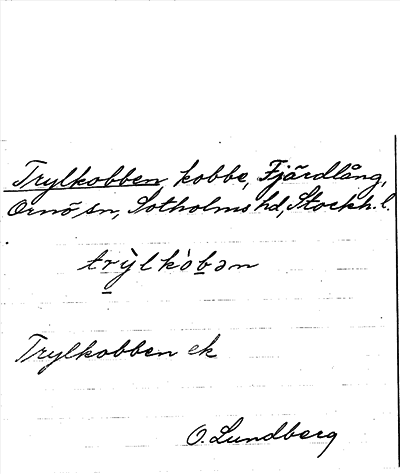 Trylkobben kobbe, Fjärdlång,
Ornö sn, Sotholms hd, Stockh. l.
trỳlkòbən
Trylkobben ek
O. Lundberg